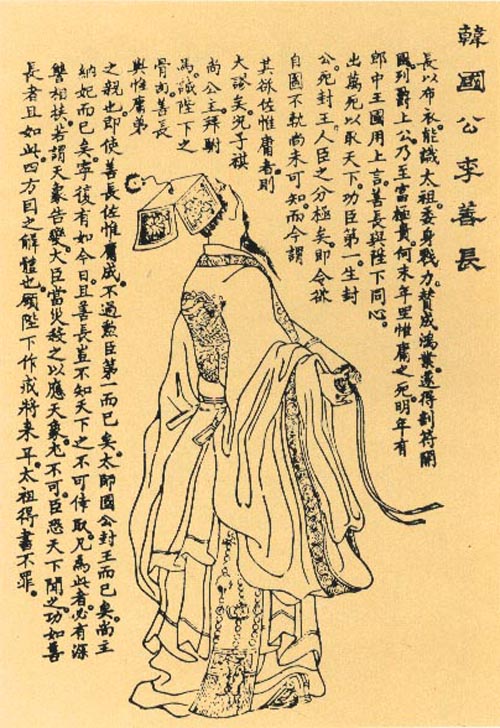 韓國公李善長
長以布衣能識太祖。委身戮力。贊成鴻業。遂得剖符開
國。列爵上公。乃至富極貴。何末年里惟庸之死。明年有
郎中王國用上言。善長與陛下同心。
出萬死以取天下。功臣第一。生封
公。死封王。人臣之分極矣。即令欲
自圖不軌。尚未可知。而今謂
其欲佐惟庸者。則
大謬矣。況子祺
尚公主。拜駙
馬。誠陛下之
骨肉。善長
與惟庸。弟
之親也。即使善長佐惟庸成。不過勲臣第一而已矣。太師國公封王而已矣。尚主
納妃而已矣。寧復有如今日。且善長豈不知天下之不可倖取。凡為此者。必有深
讐相挾。若謂天象告變。大臣當災。殺之以應天象。尤不可。臣恐天下聞之。功如善
長者且如此。四方因之解體也。願陛下作戒將來耳。太祖得書不罪。